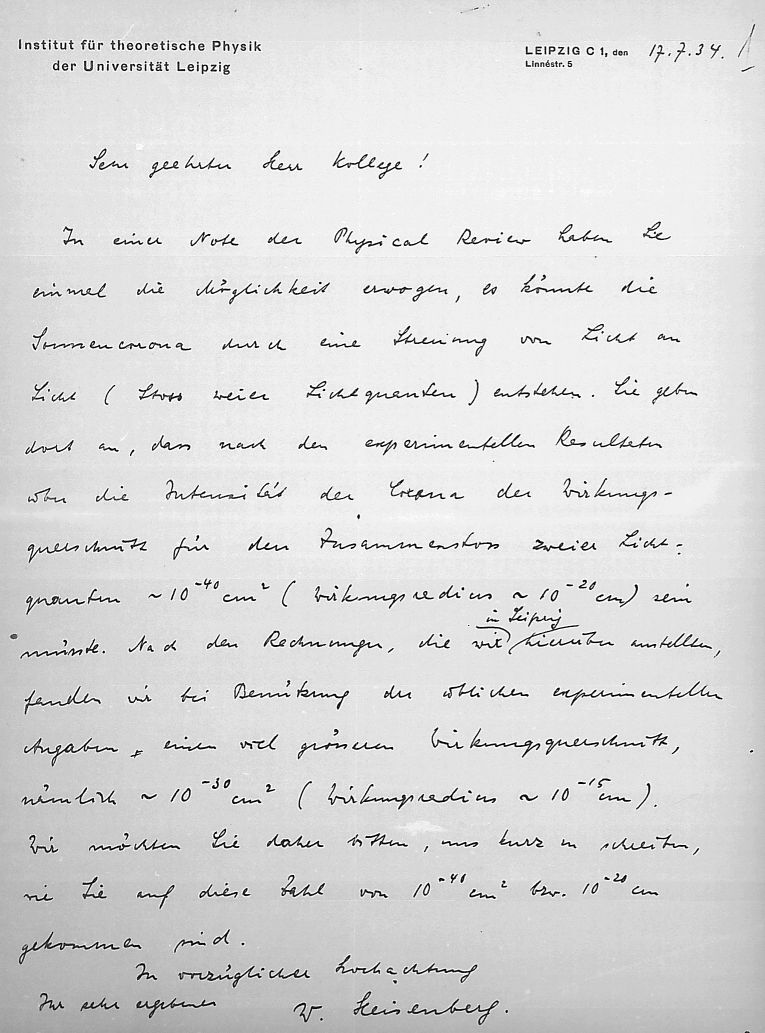 Institut für theoretische Physik
der Universität Leipzig
LEIPZIG C 1, den 17.7.34.
Linnéstr. 5
Sehr geehrter Herr Kollege!
In einer Note der Physical Review haben Sie
einmal die Möglichkeit erwogen, es könnte die
Sonnencorona durch eine Streuung von Licht an
Licht (Stoss zweier Lichtquanten) entstehen. Sie geben
dort an, dass nach den experimentellen Resultaten
über die Intensität der Corona der Wirkungs-
querschnitt für den Zusammenstoss zweier Licht-
quanten ~ 10⁻⁴⁰ cm² (Wirkungsradius ~ 10⁻²⁰ cm) sein
müsste. Nach den Rechnungen, die wir in Leipzig hierüber anstellten,
fanden wir bei Benützung der üblichen experimentellen
Angaben einen viel grösseren Wirkungsquerschnitt,
nämlich ~ 10⁻³⁰ cm² (Wirkungsradius ~ 10⁻¹⁵ cm).
Wir möchten Sie daher bitten, uns kurz zu schreiben,
wie Sie auf diese Zahl von 10⁻⁴⁰ cm² bzw. 10⁻²⁰ cm
gekommen sind.
In vorzüglicher Hochachtung
Ihr sehr ergebener W. Heisenberg.